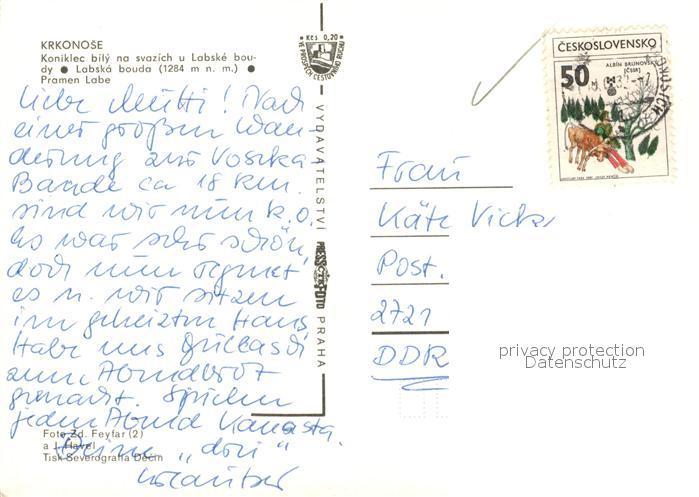 KRKONOŠE
Koniklec bílý na svazích u Labské bou-
dy ● Labská bouda (1284 m n. m.) ●
Pramen Labe
Liebe Mutti! Nach
einer großen Wan-
derung zur Vosecka-
Baude ca 18 km.
sind wir nun k.o.
Es war sehr schön,
doch nun regnet
es u. wir sitzen
im geheizten Haus,
habe uns
zum Abendbrot
gemacht. Spielen
jeden Abend Kanasta.
Deine
Foto Zd. Feyfar (2)
a J. Havel
Tisk Severografia Děčín
Kčs 0,20
VE PROSPĚCH CESTOVNÍHO RUCHU
VYDAVATELSTVÍ PRESSFOTO PRAHA
ČESKOSLOVENSKO
ALBÍN BRUNOVSKÝ
(ČSSR)
50
Frau
Käte
Post.
2721
DDR
privacy protection
Datenschutz